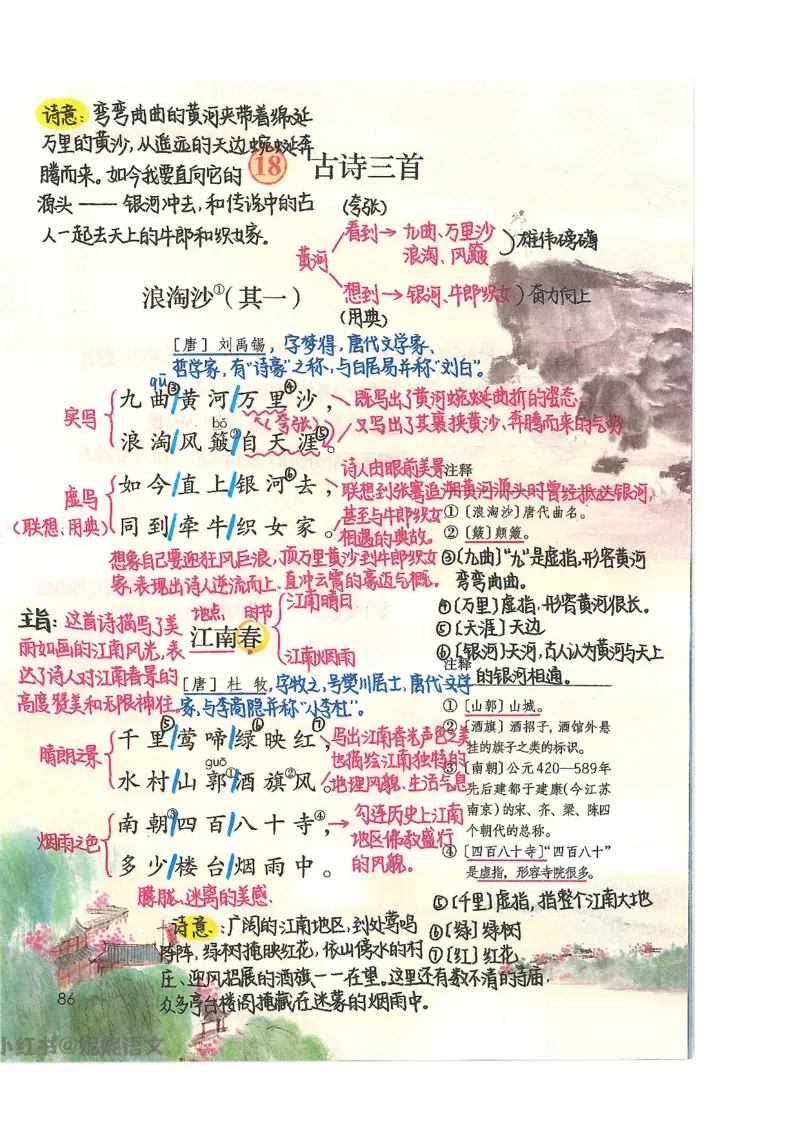 诗意：弯弯曲曲的黄河夹带着绵延
万里的黄沙，从遥远的天边蜿蜒奔
腾而来。如今我要直向它的
源头——银河冲去，和传说中的古
人一起去天上的牛郎和织女家。
18 古诗三首
(夸张)
黄河
看到→九曲、万里沙
浪淘、风簸
雄伟磅礴
想到→银河、牛郎织女
奋力向上
(用典)
浪淘沙①（其一）
［唐］刘禹锡，字梦得，唐代文学家、
哲学家，有“诗豪”之称，与白居易并称“刘白”。
qū
实写
九曲③/黄河/万里④沙，
既写出了黄河蜿蜒曲折的姿态
bǒ
(夸张)
浪淘/风簸②/自天涯⑤。
又写出了其裹挟黄沙、奔腾而来的气势
虚写
(联想、用典)
如今/直上/银河⑥去，
诗人由眼前美景
联想到张骞追溯黄河源头时曾经抵达银河，
同到/牵牛/织女家。
甚至与牛郎织女
相遇的典故。
想象自己要迎狂风巨浪，顶万里黄沙到牛郎织女
家，表现出诗人逆流而上、直冲云霄的豪迈气概。
注释
①〔浪淘沙〕唐代曲名。
②〔簸〕颠簸。
③〔九曲〕“九”是虚指，形容黄河
弯弯曲曲。
④〔万里〕虚指，形容黄河很长。
⑤〔天涯〕天边
⑥〔银河〕天河，古人认为黄河与天上
的银河相通。
主旨：这首诗描写了美
丽如画的江南风光，表
达了诗人对江南春景的
高度赞美和无限神往。
地点 时节
江南春
江南晴日
江南烟雨
［唐］杜牧，字牧之，号樊川居士，唐代文学
家，与李商隐并称“小李杜”。
晴朗之景
千里⑤/莺啼/绿⑥映红⑦，
写出江南春光声色之美
guō
水村/山郭①/酒旗②风。
也描绘江南独特的
地理风貌、生活气息
烟雨之色
南朝③/四百/八十寺④，
多少/楼台/烟雨中。
勾连历史上江南
地区佛教盛行
的风貌。
朦胧、迷离的美感
注释
①〔山郭〕山城。
②〔酒旗〕酒招子，酒馆外悬
挂的旗子之类的标识。
③〔南朝〕公元420—589年
先后建都于建康(今江苏
南京)的宋、齐、梁、陈四
个朝代的总称。
④〔四百八十寺〕“四百八十”
是虚指，形容寺院很多。
⑤〔千里〕虚指，指整个江南大地
⑥〔绿〕绿树
⑦〔红〕红花
诗意：广阔的江南地区，到处莺鸣
阵阵，绿树掩映红花，依山傍水的村
庄、迎风招展的酒旗一一在望。这里还有数不清的寺庙，
众多亭台楼阁掩藏在迷蒙的烟雨中。
86
小红书@妮妮语文